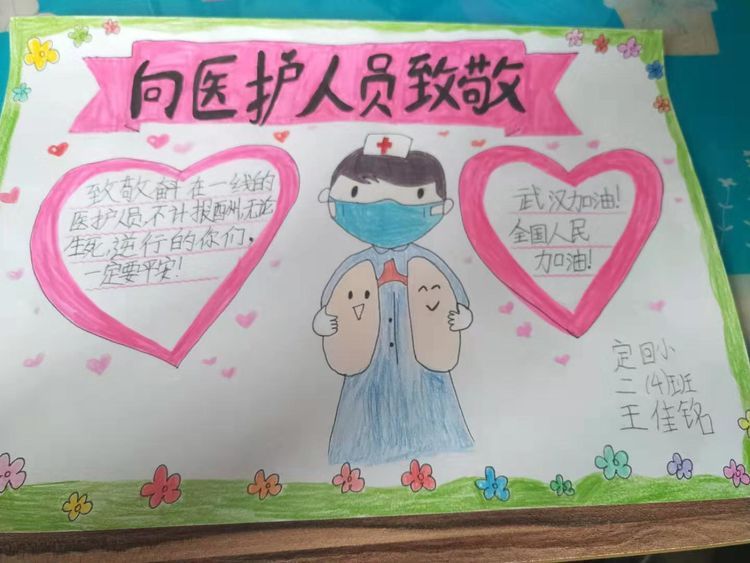 向医护人员致敬
致敬奋在一线的
医护人员不计报酬,无论
生死,逆行的你们,
一定要平安!
武汉加油!
全国人民
加油!
定日小
二(4)班
王佳铭